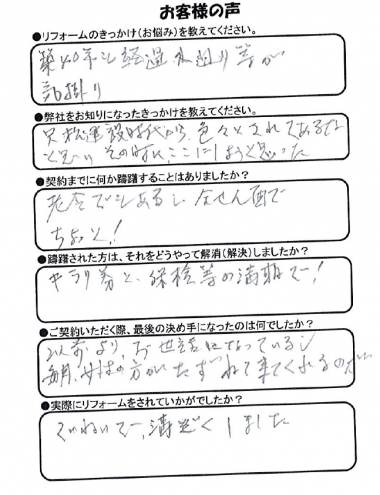 お客様の声
●リフォームのきっかけ(お悩み)を教えてください。
築40年も経過 水廻り等が
気掛り
●弊社をお知りになったきっかけを教えてください。
色々とされてあるな
その時はここにしようと思った
●契約までに何か躊躇することはありましたか?
老令でもあるし、なせん面で
ちょっと!
●躊躇された方は、それをどうやって解消(解決)しましたか?
保検等の満期で!
●ご契約いただく際、最後の決め手になったのは何でしたか?
以前より、お世話になっているし
毎月、女性の方がたずねて来てくれるので
●実際にリフォームをされていかがでしたか?
ていねいで、満足しました